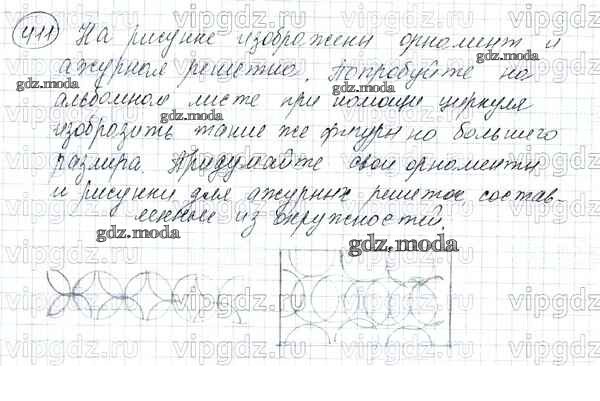 411 На рисунке изображены орнамент и
ажурная решетка. Попробуйте на
альбомном листе при помощи циркуля
изобразить такие же фигуры но большего
размера. Придумайте свои орнаменты
и рисунки для ажурных решеток, состав-
ленные из окружностей.